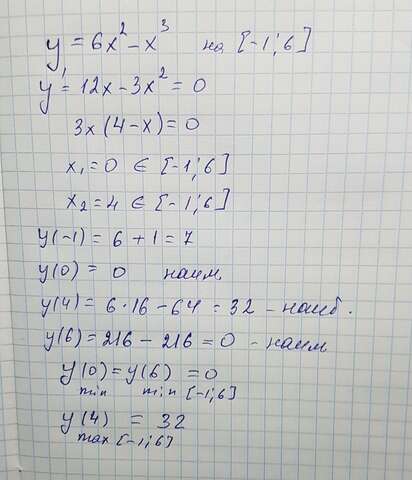 y = 6x² - x³ на [-1; 6]
y' = 12x - 3x² = 0
3x(4-x) = 0
x₁ = 0 ∈ [-1; 6]
x₂ = 4 ∈ [-1; 6]
y(-1) = 6 + 1 = 7
y(0) = 0 наим.
y(4) = 6·16 - 64 = 32 - наиб.
y(6) = 216 - 216 = 0 - наим
y(0) = y(6) = 0
min min [-1; 6]
y(4) = 32
max [-1; 6]